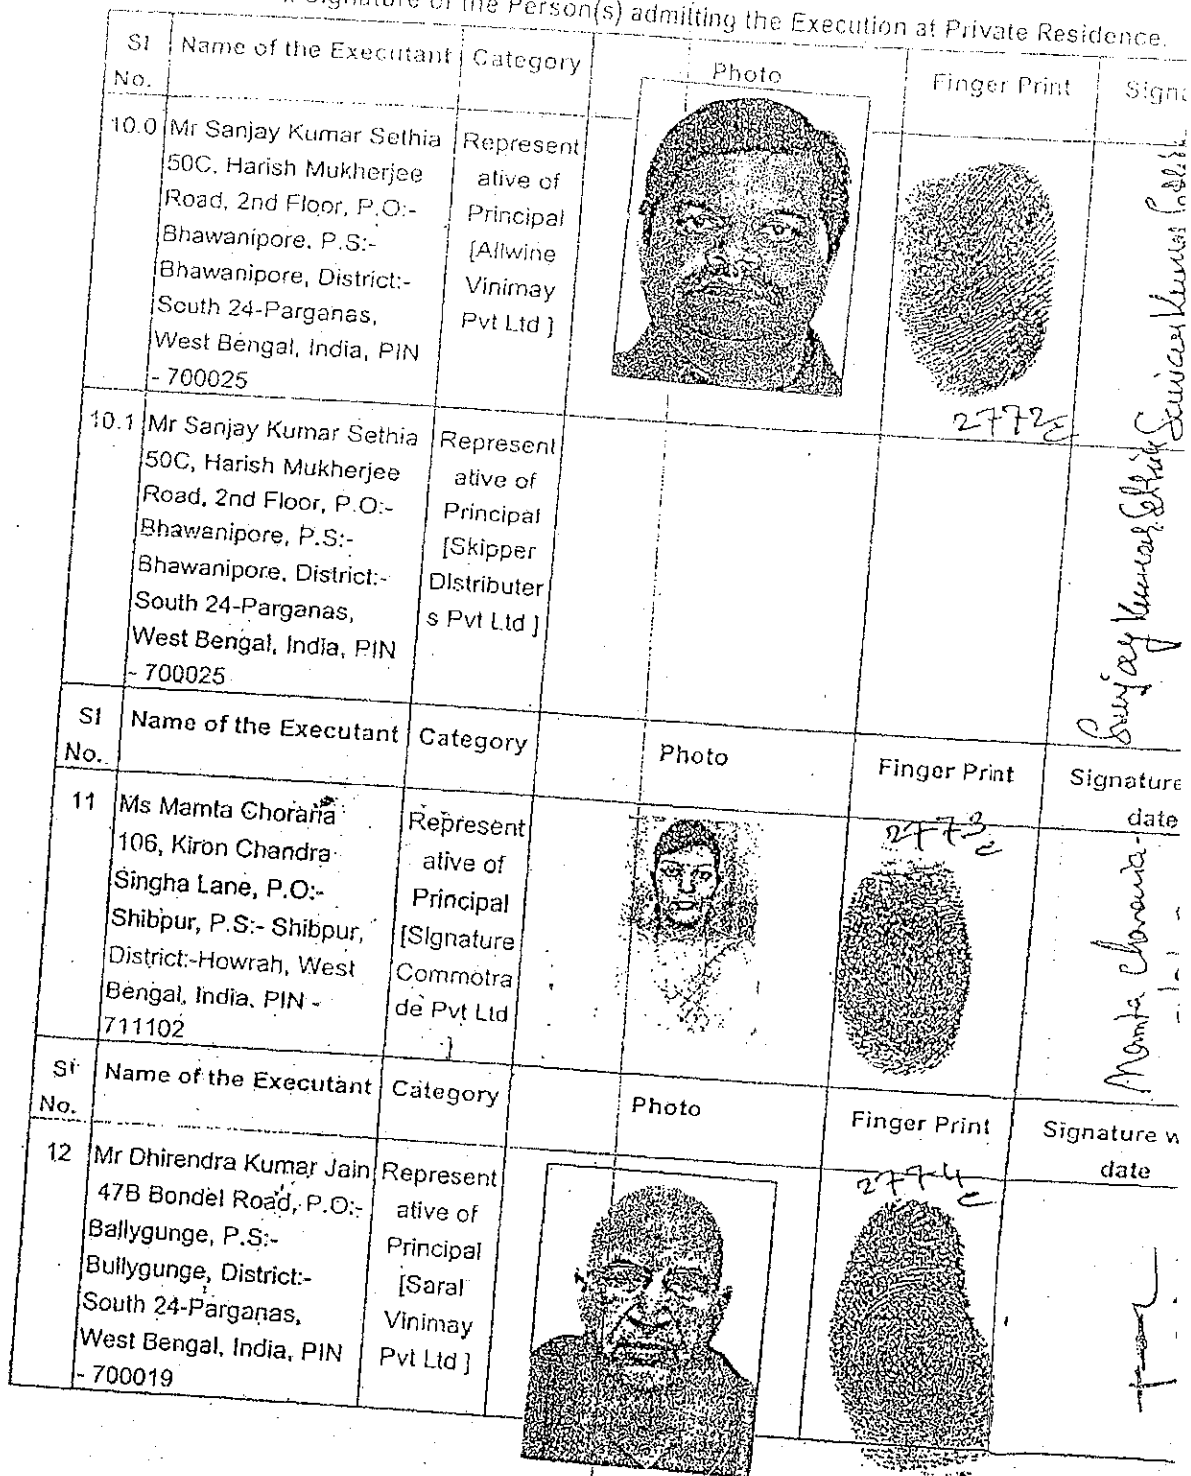 Signature of the Person(s) admitting the Execution at Private Residence.
Sl No. Name of the Executant Category Photo Finger Print
10.0 Mr Sanjay Kumar Sethia
50C, Harish Mukherjee
Road, 2nd Floor, P.O:-
Bhawanipore, P.S:-
Bhawanipore, District:-
South 24-Parganas,
West Bengal, India, PIN
- 700025
Represent
ative of
Principal
[Allwine
Vinimay
Pvt Ltd ]
2772
10.1 Mr Sanjay Kumar Sethia
50C, Harish Mukherjee
Road, 2nd Floor, P.O:-
Bhawanipore, P.S:-
Bhawanipore, District:-
South 24-Parganas,
West Bengal, India, PIN
- 700025
Represent
ative of
Principal
[Skipper
Distributer
s Pvt Ltd ]
Sanjay Kumar Sethia
Sanjay Kumar Sethia
Sl No. Name of the Executant Category Photo Finger Print Signature
date
11 Ms Mamta Choraria
106, Kiron Chandra
Singha Lane, P.O:-
Shibpur, P.S:- Shibpur,
District:-Howrah, West
Bengal, India, PIN -
711102
Represent
ative of
Principal
[Signature
Commotra
de Pvt Ltd
]
2773
Mamta Choraria
Sl No. Name of the Executant Category Photo Finger Print Signature w
date
12 Mr Dhirendra Kumar Jain
47B Bondel Road, P.O:-
Ballygunge, P.S:-
Bullygunge, District:-
South 24-Parganas,
West Bengal, India, PIN
- 700019
Represent
ative of
Principal
[Saral
Vinimay
Pvt Ltd ]
2774